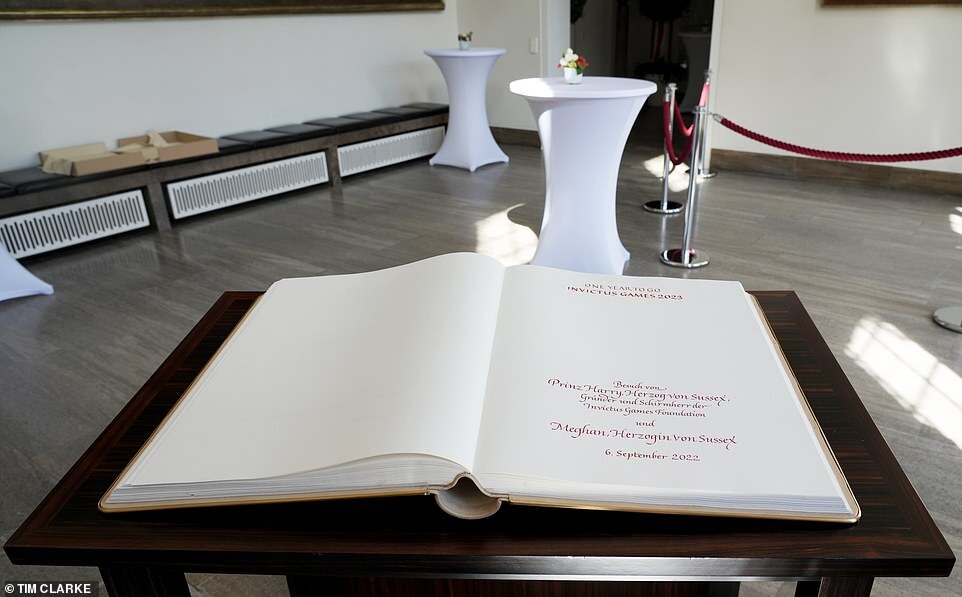 ONE YEAR TO GO
INVICTUS GAMES 2023
Besuch von
Prinz Harry, Herzog von Sussex,
Gründer und Schirmherr der
Invictus Games Foundation
und
Meghan, Herzogin von Sussex
6. September 2022
© TIM CLARKE